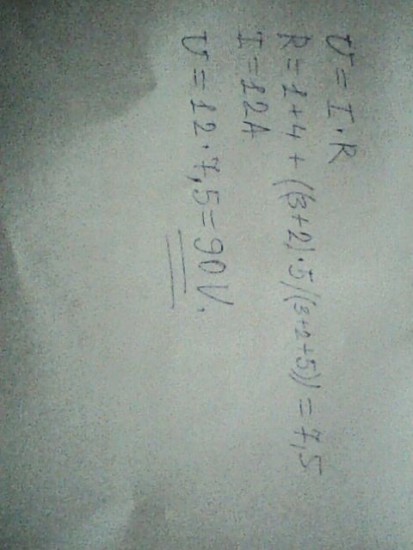 U = I · R
R = 1+4 + ((3+2) · 5/(3+2+5)) = 7,5
I = 12A
U = 12 · 7,5 = 90 V.